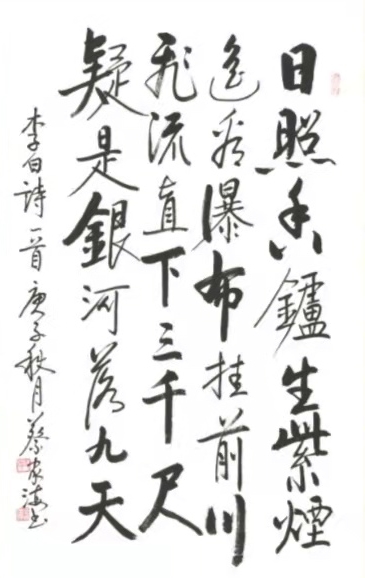 日照香鑪生紫煙
遙看瀑布挂前川
飛流直下三千尺
疑是銀河落九天
李白詩一首庚子秋月蔡家海書